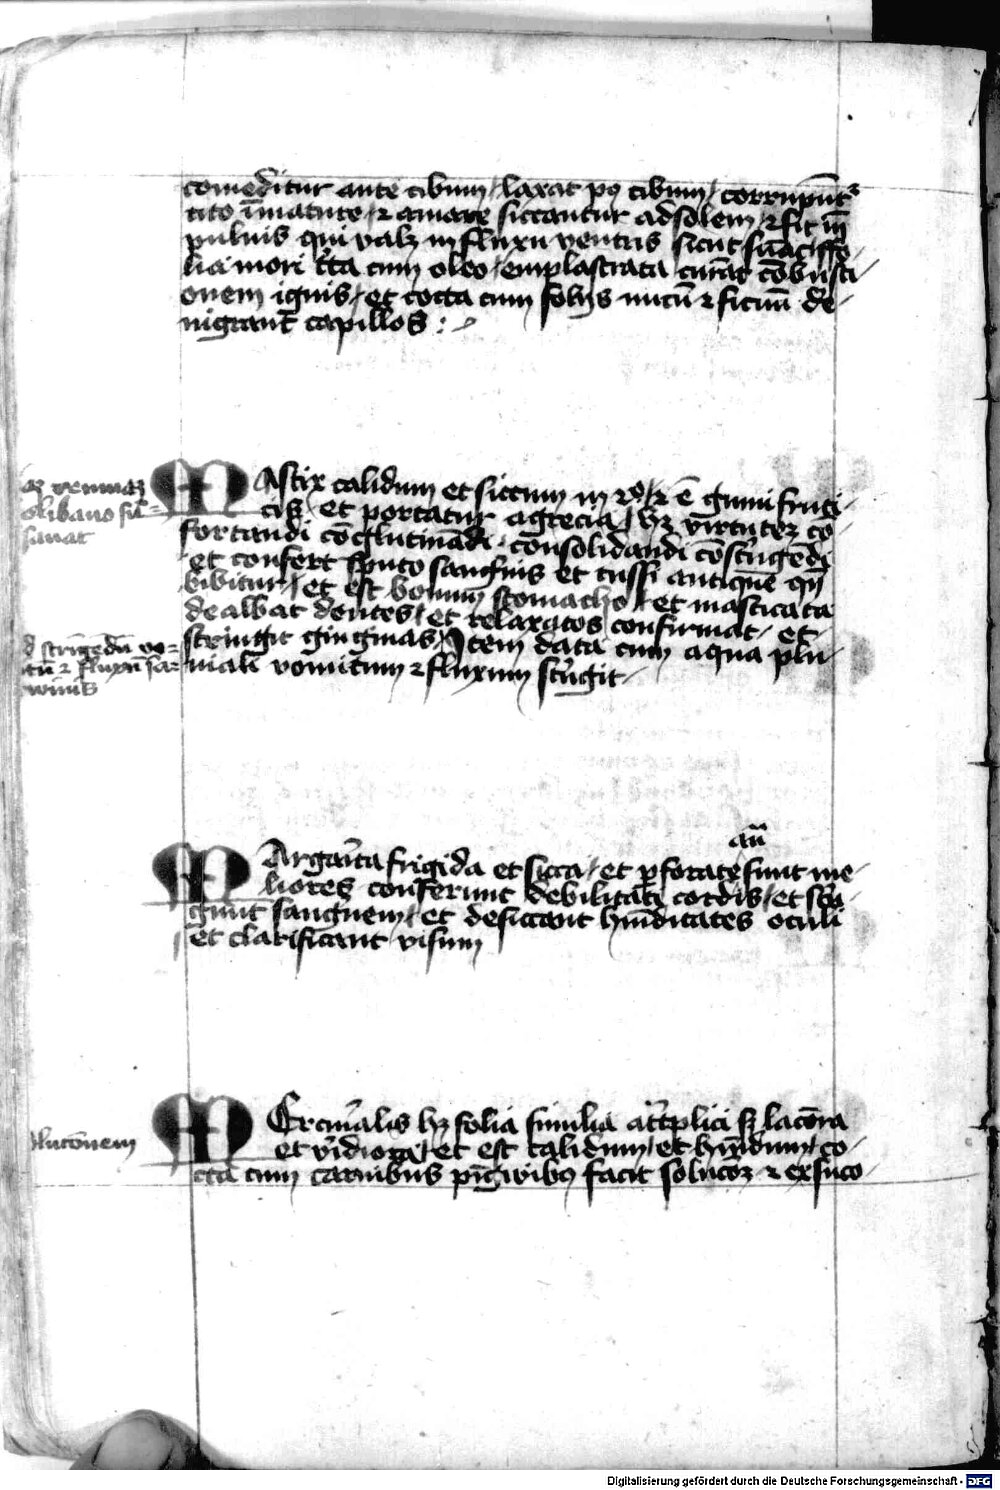 comeditur ante cibum / laxat pꝯ cibum / corrumpūtꝛ
cito īmature ⁊ amare siccantur ad solem ⁊ fit īn
puluis qui valꝫ in fluxu ventris sicut sumac / fo-
lia mori tʼta cum oleo / emplastrata curāt cōbusti-
onem ignis / et cocta cum folijs nucū ⁊ ficuū de-
nigrant capillos :
Mastix calidum et siccum in 2º / ⁊ ē gumi fruti-
cis / et portatur a grecia / hꝫ virtutez cō-
fortandi cōglutinādi . consolidandi cōstʼigēdi
et confert sputo sanguīs et tussi antique qn̄
bibitur / et est bonum stomacho / et masticata
dealbat dentes / et relaxatos confirmat / et
stringit gingiuas / Item data cum aqua plu-
uiali vomitum ⁊ fluxum stʼīgit
olibano
sanat
d strīgēdū vo-
tū ⁊ fluxū sā-
winis
an̄
Margarʼita frigida et sicca / et pforate sunt me-
liores conferunt debilitati cordis / et stʼī-
gunt sanguem / et desiccant hūiditates oculi
et clarificant visum
Mercurʼialis hꝫ folia similia atʼiplici sꝫ lacōra
et vʼidiora / et est calidum / et hūidum / co-
cta cum carnibus pīgwibꝯ facit solucōz ⁊ ex suco
olucōnem
Digitalisierung gefördert durch die Deutsche Forschungsgemeinschaft - DFG